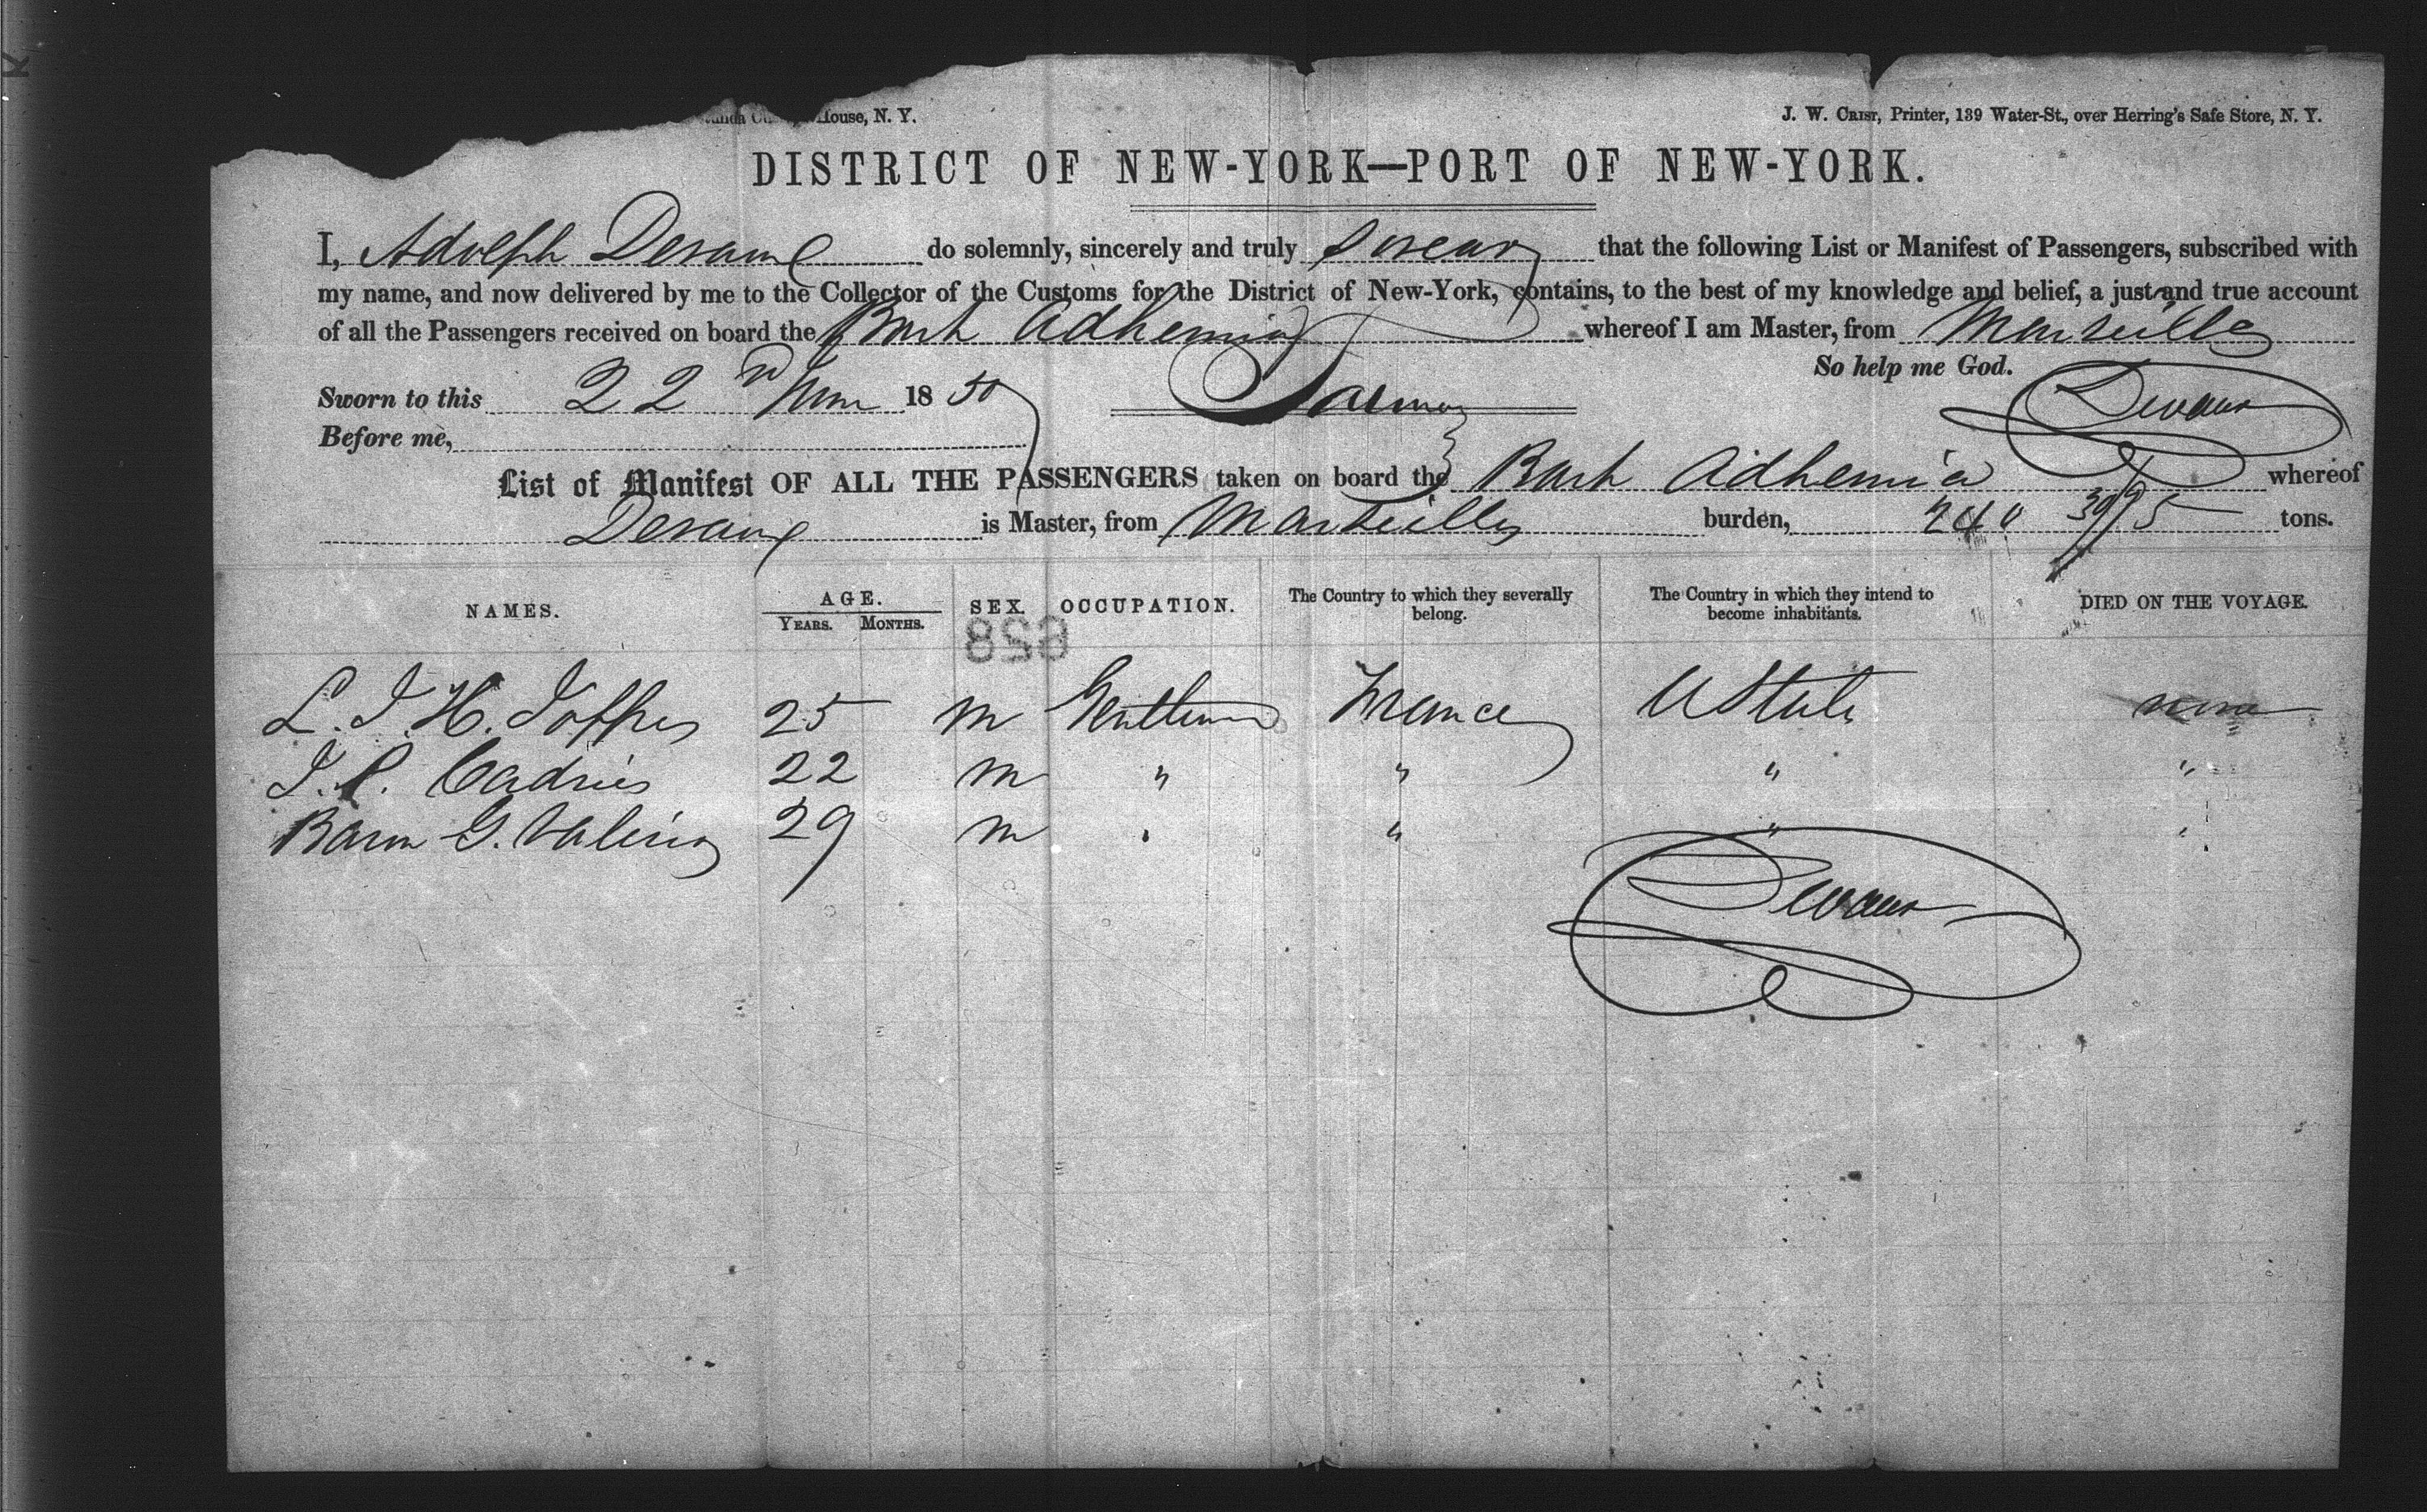 House, N. Y.
J. W. Crist, Printer, 139 Water-St., over Herring's Safe Store, N. Y.
DISTRICT OF NEW-YORK—PORT OF NEW-YORK.
I, Adolph do solemnly, sincerely and truly swear that the following List or Manifest of Passengers, subscribed with
my name, and now delivered by me to the Collector of the Customs for the District of New-York, contains, to the best of my knowledge and belief, a just and true account
of all the Passengers received on board the Bark Adhemia whereof I am Master, from Marseilles
So help me God.
Sworn to this 22nd 1850
Before me,
List of Manifest OF ALL THE PASSENGERS taken on board the Bark Adhemia whereof
is Master, from Marseilles burden, 240 39/95 tons.
NAMES. AGE. SEX. OCCUPATION. The Country to which they severally belong. The Country in which they intend to become inhabitants. DIED ON THE VOYAGE.
YEARS. MONTHS.
658
L. J. H. 25 m Gentleman France U State none
J. P. 22 m " " " "
Baron G. 29 m " " " "